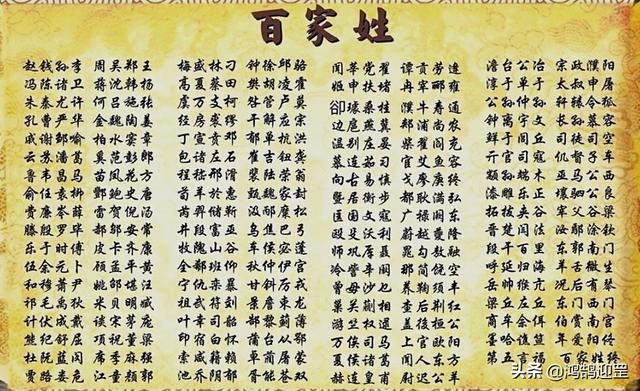 百家姓
赵钱孙李 周吴郑王
冯陈诸卫 蒋沈韩杨
朱秦尤许 何吕施张
孔曹严华 金魏陶姜
戚谢邹喻 柏水窦章
云苏潘葛 奚范彭郎
鲁韦昌马 苗凤花方
俞任袁柳 酆鲍史唐
费廉岑薛 雷贺倪汤
滕殷罗毕 郝邬安常
乐于时傅 皮卡齐康
伍余元卜 顾孟平黄
和穆萧尹 姚邵堪汪
祁毛禹狄 米贝明臧
计伏成戴 谈宋茅庞
熊纪舒屈 项祝董梁
杜阮蓝闵 席季麻强
贾路娄危 江童颜郭
梅盛林刁 钟徐邱骆
高夏蔡田 樊胡凌霍
虞万支柯 昝管卢莫
经房裘缪 干解应宗
丁宣贲邓 郁单杭洪
包诸左石 崔吉钮龚
程嵇邢滑 裴陆荣翁
荀羊於惠 甄曲家封
芮羿储靳 汲邴糜松
井段富巫 乌焦巴弓
牧隗山谷 车侯宓蓬
全郗班仰 秋仲伊宫
宁仇栾暴 甘钭厉戎
祖武符刘 景詹束龙
叶幸司韶 郜黎蓟薄
印宿白怀 蒲邰从鄂
索咸籍赖 卓蔺屠蒙
池乔阴郁 胥能苍双
闻莘党翟 谭贡劳逄
姬申扶堵 冉宰郦雍
郤璩桑桂 濮牛寿通
边扈燕冀 郏浦尚农
温别庄晏 柴瞿阎充
慕连茹习 宦艾鱼容
向古易慎 戈廖庾终
暨居衡步 都耿满弘
匡国文寇 广禄阙东
欧殳沃利 蔚越夔隆
师巩厍聂 晁勾敖融
冷訾辛阚 那简饶空
曾毋沙乜 养鞠须丰
巢关蒯相 查后荆红
游竺权逯 盖益桓公
万俟司马 上官欧阳
夏侯诸葛 闻人东方
澹台公冶 宗政濮阳
淳于单于 太叔申屠
公孙仲孙 轩辕令狐
钟离宇文 长孙慕容
鲜于闾丘 司徒司空
亓官司寇 仉督子车
颛孙端木 巫马公西
漆雕乐正 壤驷公良
拓拔夹谷 宰父谷梁
晋楚闫法 汝鄢涂钦
段干百里 东郭南门
呼延归海 羊舌微生
岳帅缑亢 况后有琴
梁丘左丘 东门西门
商牟佘佴 伯赏南宫
墨哈谯笪 年爱阳佟
第五言福 百家姓终
头条 @鸿鹄迎罡